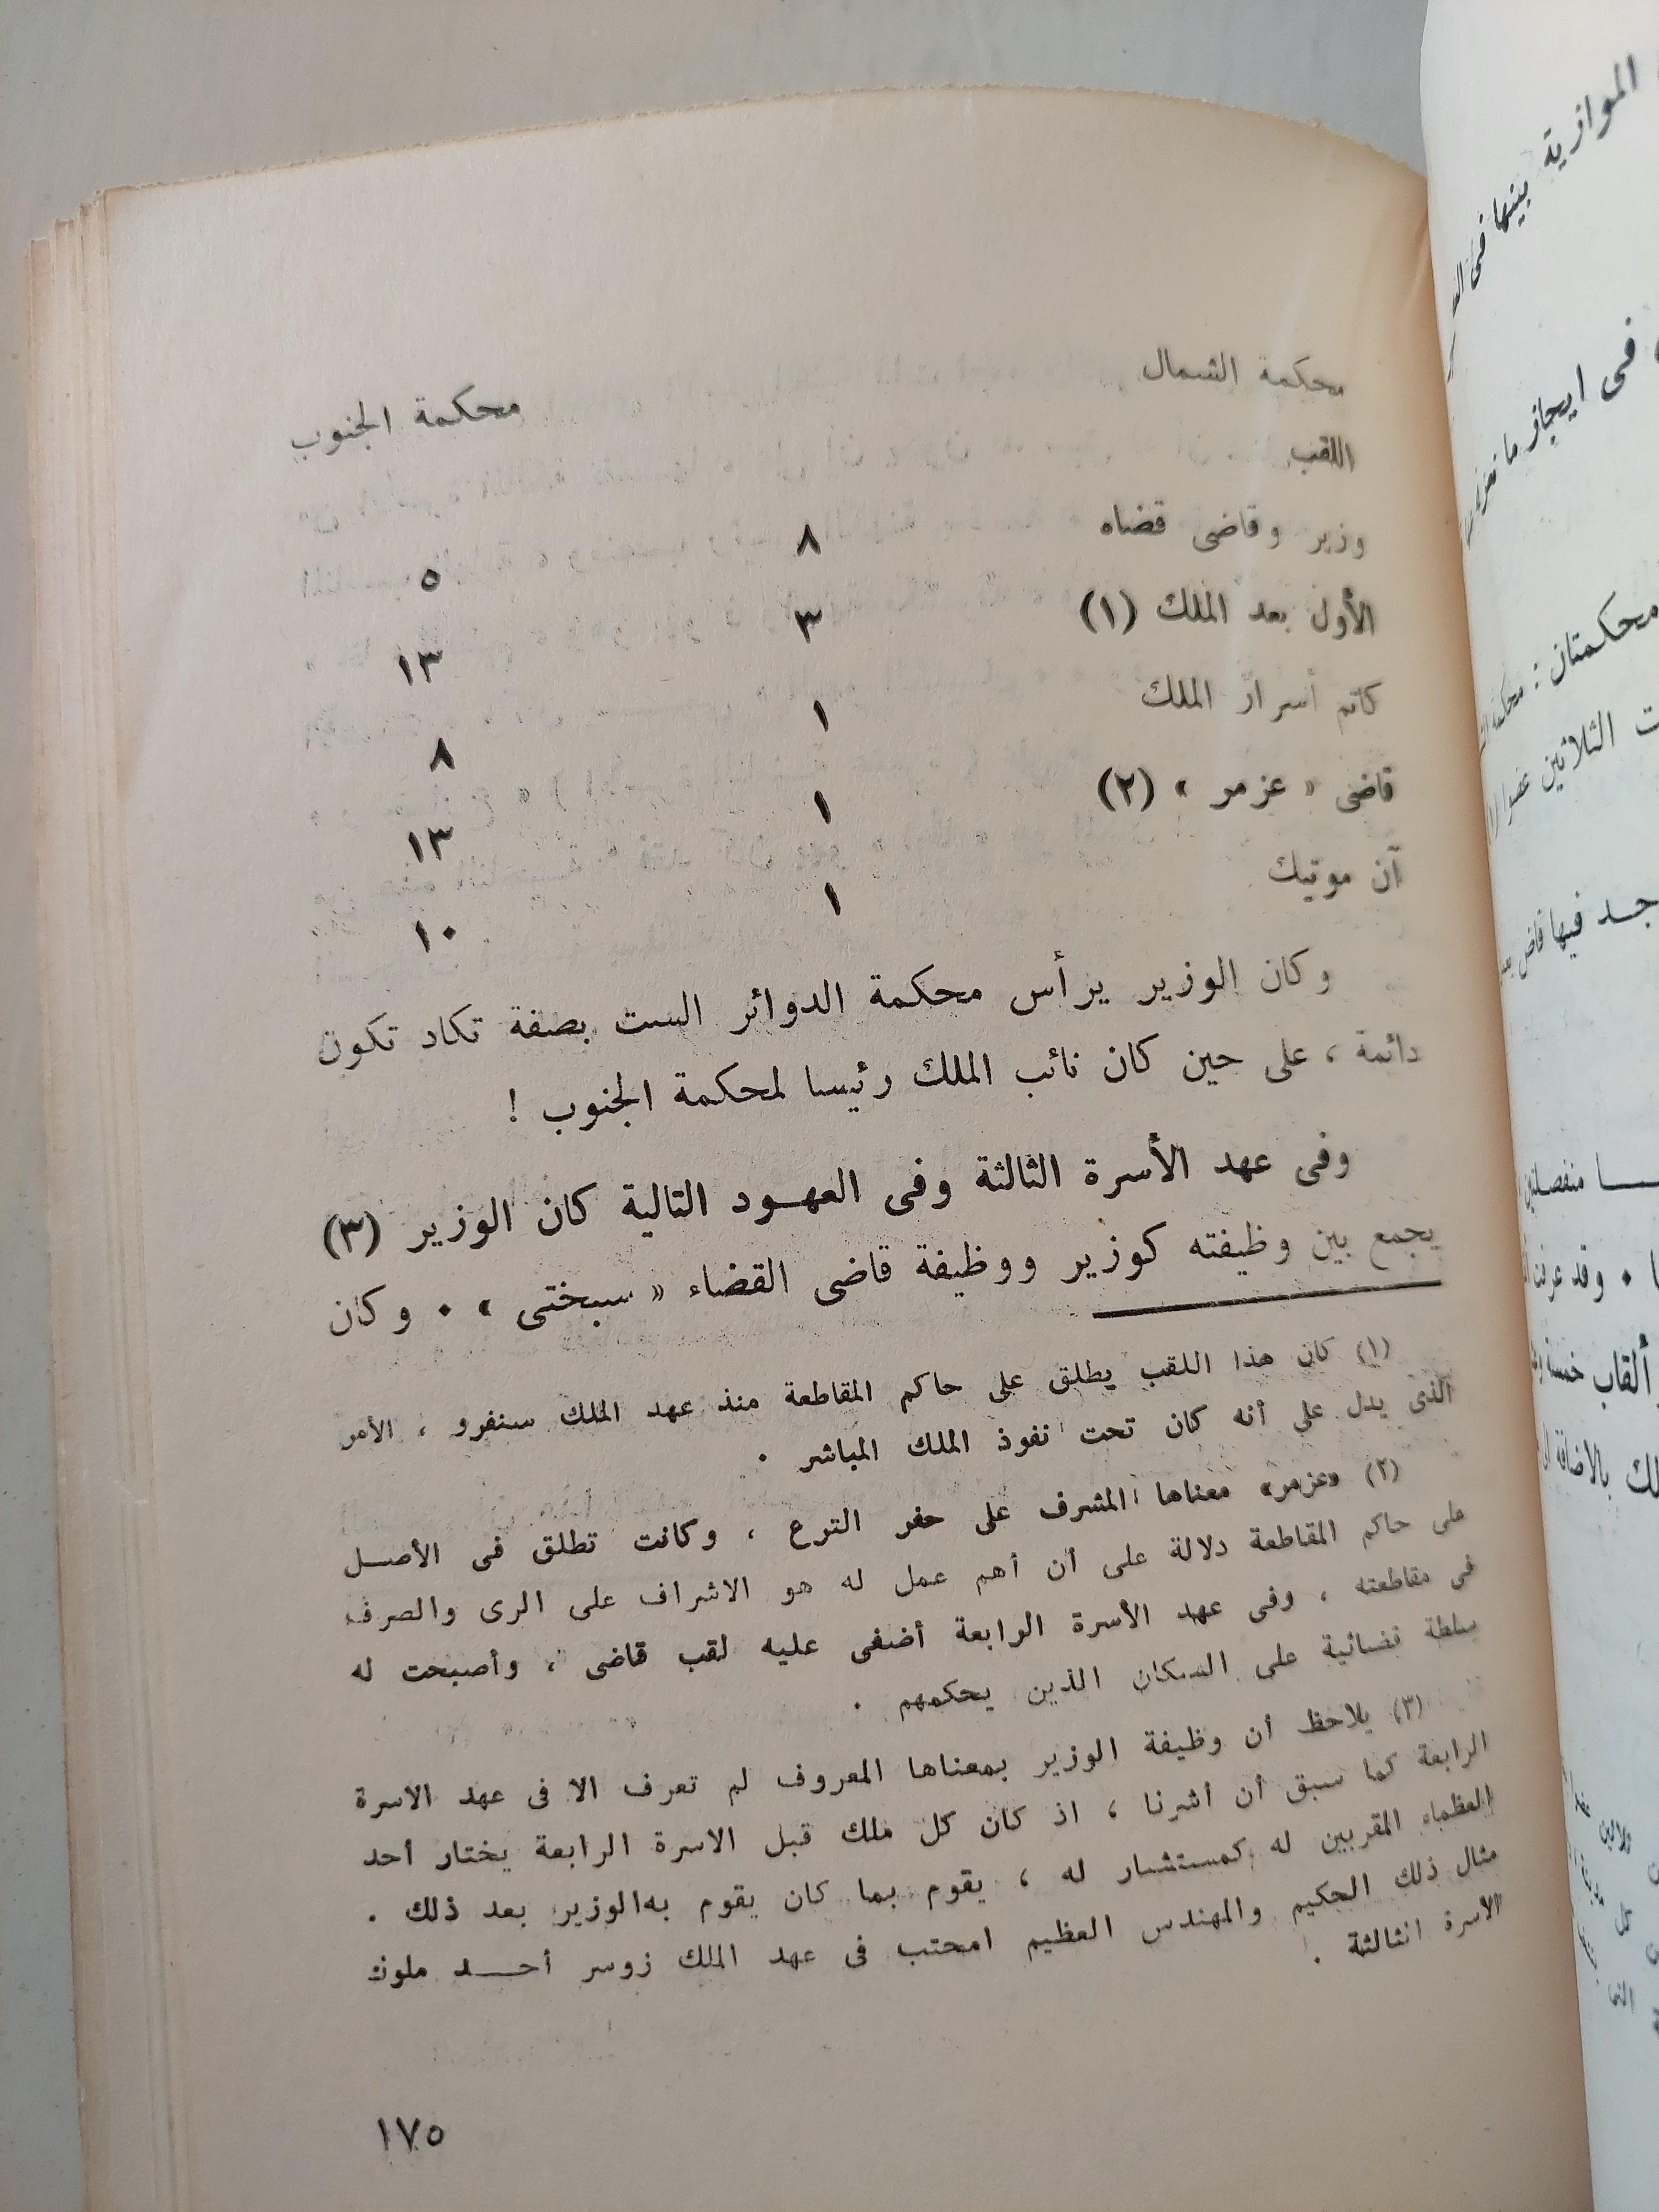 محكمة الشمال محكمة الجنوب
اللقب
وزير وقاضى قضاه ٨ ٥
الأول بعد الملك (١) ٣ ١٣
كاتم أسرار الملك ١ ٨
قاضى « عزمر » (٢) ١ ١٣
آن موتيك ١ ١٠
وكان الوزير يرأس محكمة الدوائر الست بصفة تكاد تكون
دائمة ، على حين كان نائب الملك رئيسا لمحكمة الجنوب !
وفى عهد الأسرة الثالثة وفى العهود التالية كان الوزير (٣)
يجمع بين وظيفته كوزير ووظيفة قاضى القضاء « سبختى » . وكان
(١) كان هذا اللقب يطلق على حاكم المقاطعة منذ عهد الملك سنفرو ، الأمر
الذى يدل على أنه كان تحت نفوذ الملك المباشر .
(٢) «عزمر» معناها المشرف على حفر الترع ، وكانت تطلق فى الأصل
على حاكم المقاطعة دلالة على أن أهم عمل له هو الاشراف على الرى والصرف
فى مقاطعته ، وفى عهد الأسرة الرابعة أضفى عليه لقب قاضى ، وأصبحت له
سلطة قضائية على السكان الذين يحكمهم .
(٣) يلاحظ أن وظيفة الوزير بمعناها المعروف لم تعرف الا فى عهد الاسرة
الرابعة كما سبق أن أشرنا ، اذ كان كل ملك قبل الاسرة الرابعة يختار أحد
العظماء المقربين له كمستشار له ، يقوم بما كان يقوم به الوزير بعد ذلك .
مثال ذلك الحكيم والمهندس العظيم امحتب فى عهد الملك زوسر أحد ملوك
الاسرة الثالثة .
١٧٥
الموازية بينها فى
فى ايجاز ما
محكمتان : محكمة
الثلاثين عضوا
فيها قاض
منفصلتين
. وقد عرفت
ألقاب خمسة
بالاضافة